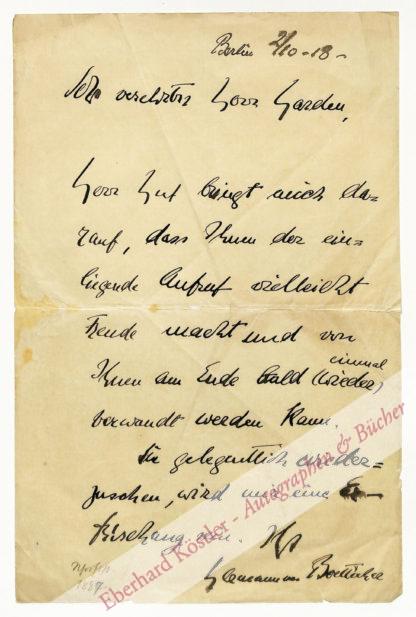 Berlin 2/10-18-
Sehr verehrter Herr Harden,
Herr Gut bringt mich da=
rauf, dass Ihnen der ein=
liegende Aufruf vielleicht
Freude macht und von
einmal
Ihnen am Ende bald (wieder)
verwandt werden kann.
Sie gelegentlich wieder=
zusehen, wird mir eine Er-
frischung sein. Ihr
Boetticher
1887
Eberhard Köstler - Autographen & Bücher